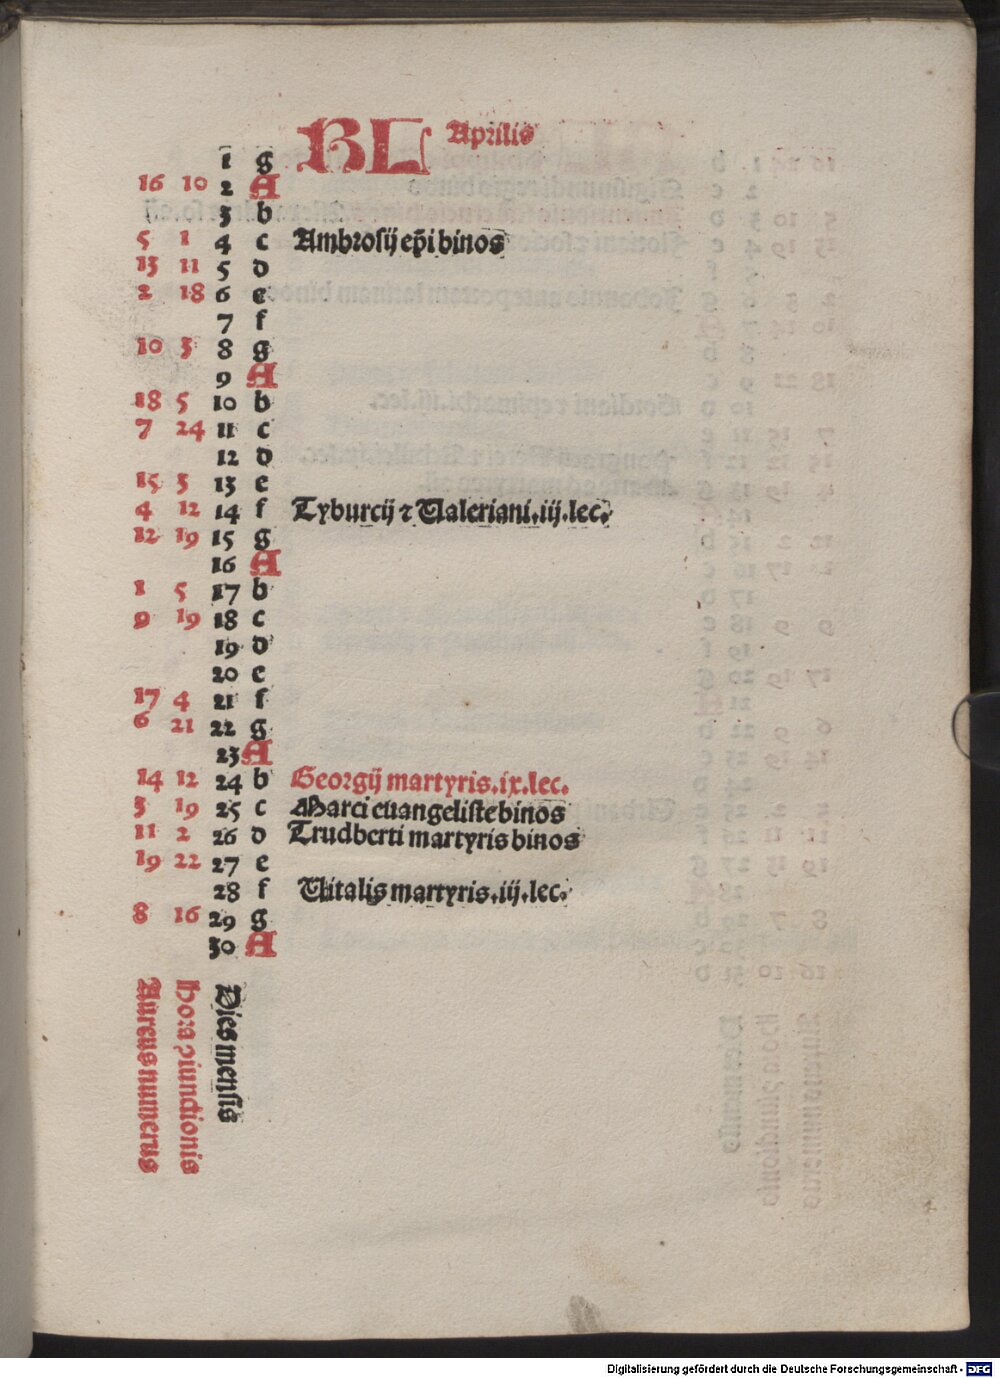 KL Aprilis
1 g
16 10 2 A
3 b
5 1 4 c Ambrosij ep̄i binos
13 11 5 d
2 18 6 e
7 f
10 3 8 g
9 A
18 5 10 b
7 24 11 c
12 d
15 3 13 e
4 12 14 f Tyburcij ⁊ Ualeriani.iij.lec.
12 19 15 g
16 A
1 5 17 b
9 19 18 c
19 d
20 e
17 4 21 f
6 21 22 g
23 A
14 12 24 b Georgij martyris.ix.lec.
3 19 25 c Marci euangeliste binos
11 2 26 d Trudberti martyris binos
19 22 27 e
28 f Uitalis martyris.iij.lec.
8 16 29 g
30 A
Aureus numerus
Hora ꝯiunctionis
Dies mensis
Digitalisierung gefördert durch die Deutsche Forschungsgemeinschaft - DFG